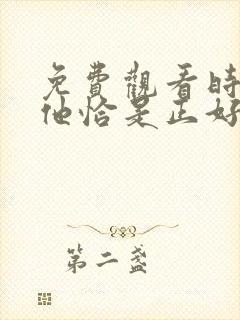 免費觀看時
他恰是正好
第二盞